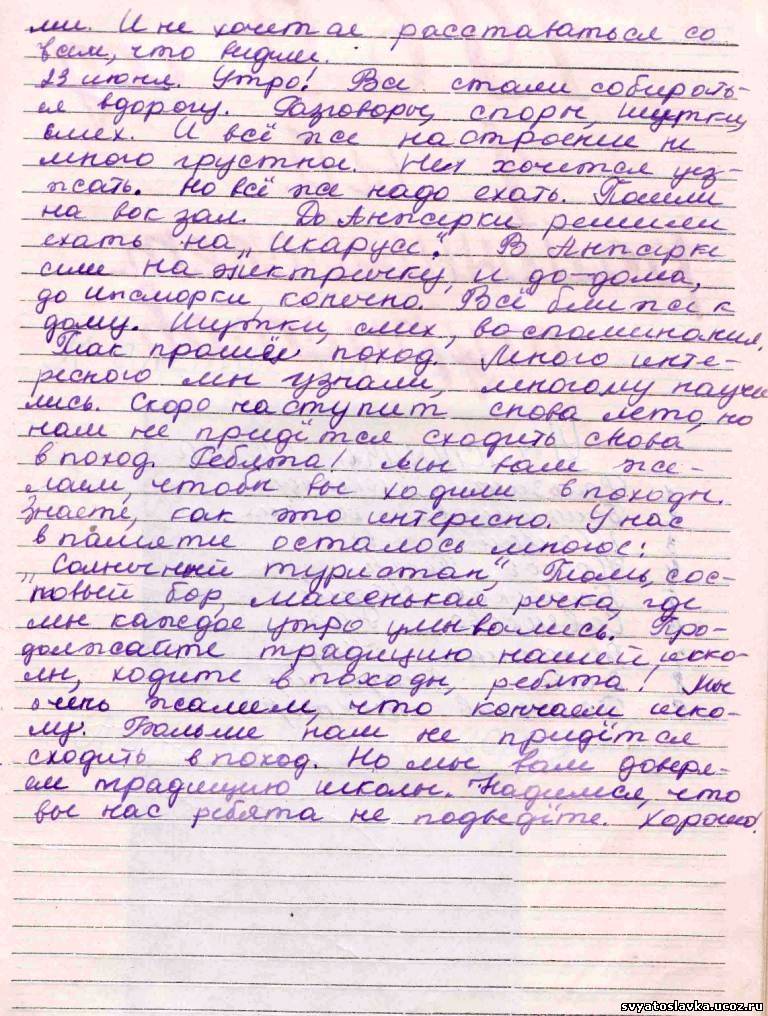 ми. И не хочется расставаться со
всем, что видели.
23 июня. Утро! Все стали собирать-
ся в дорогу. Разговоры, споры, шутки,
смех. И всё же настроение не
много грустное. Не хочется уез-
жать. Но всё же надо ехать. Пошли
на вокзал. До Анжерки решили
ехать на „Икарусе“. В Анжерке
сели на электричку, и до-дома,
до Ижморки, конечно. Всё ближе к
дому. Шутки, смех, воспоминания.
Так прошёл поход. Много инте-
ресного мы узнали, многому научи
лись. Скоро наступит снова лето, но
нам не придётся сходить снова
в поход. Ребята! Мы вам же-
лаем, чтобы вы ходили в походы.
Знаете, как это интересно. У нас
в памяти осталось многое:
„Солнечный туристан“, Томь, сос-
новый бор, маленькая речка, где
мы каждое утро умывались. Про-
должайте традицию нашей шко-
лы, ходите в походы, ребята! Мы
очень жалеем, что кончаем шко-
лу. Больше нам не придётся
сходить в поход. Но мы вам доверя-
ем традицию школы. Надеемся, что
вы нас ребята не подведёте. Хорошо!
svyatoslavka.ucoz.ru